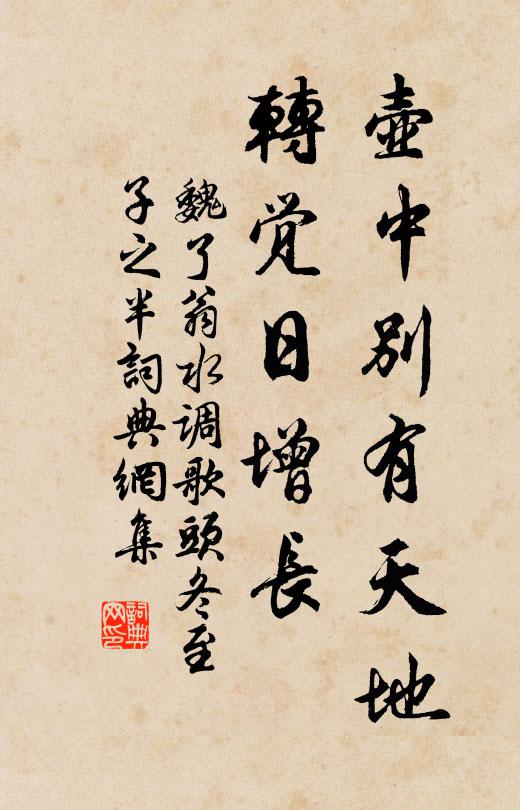 壺中別有天地
轉觉日增長
魏了翁水调歌頭冬至
子之半詞典網集
詞典网印